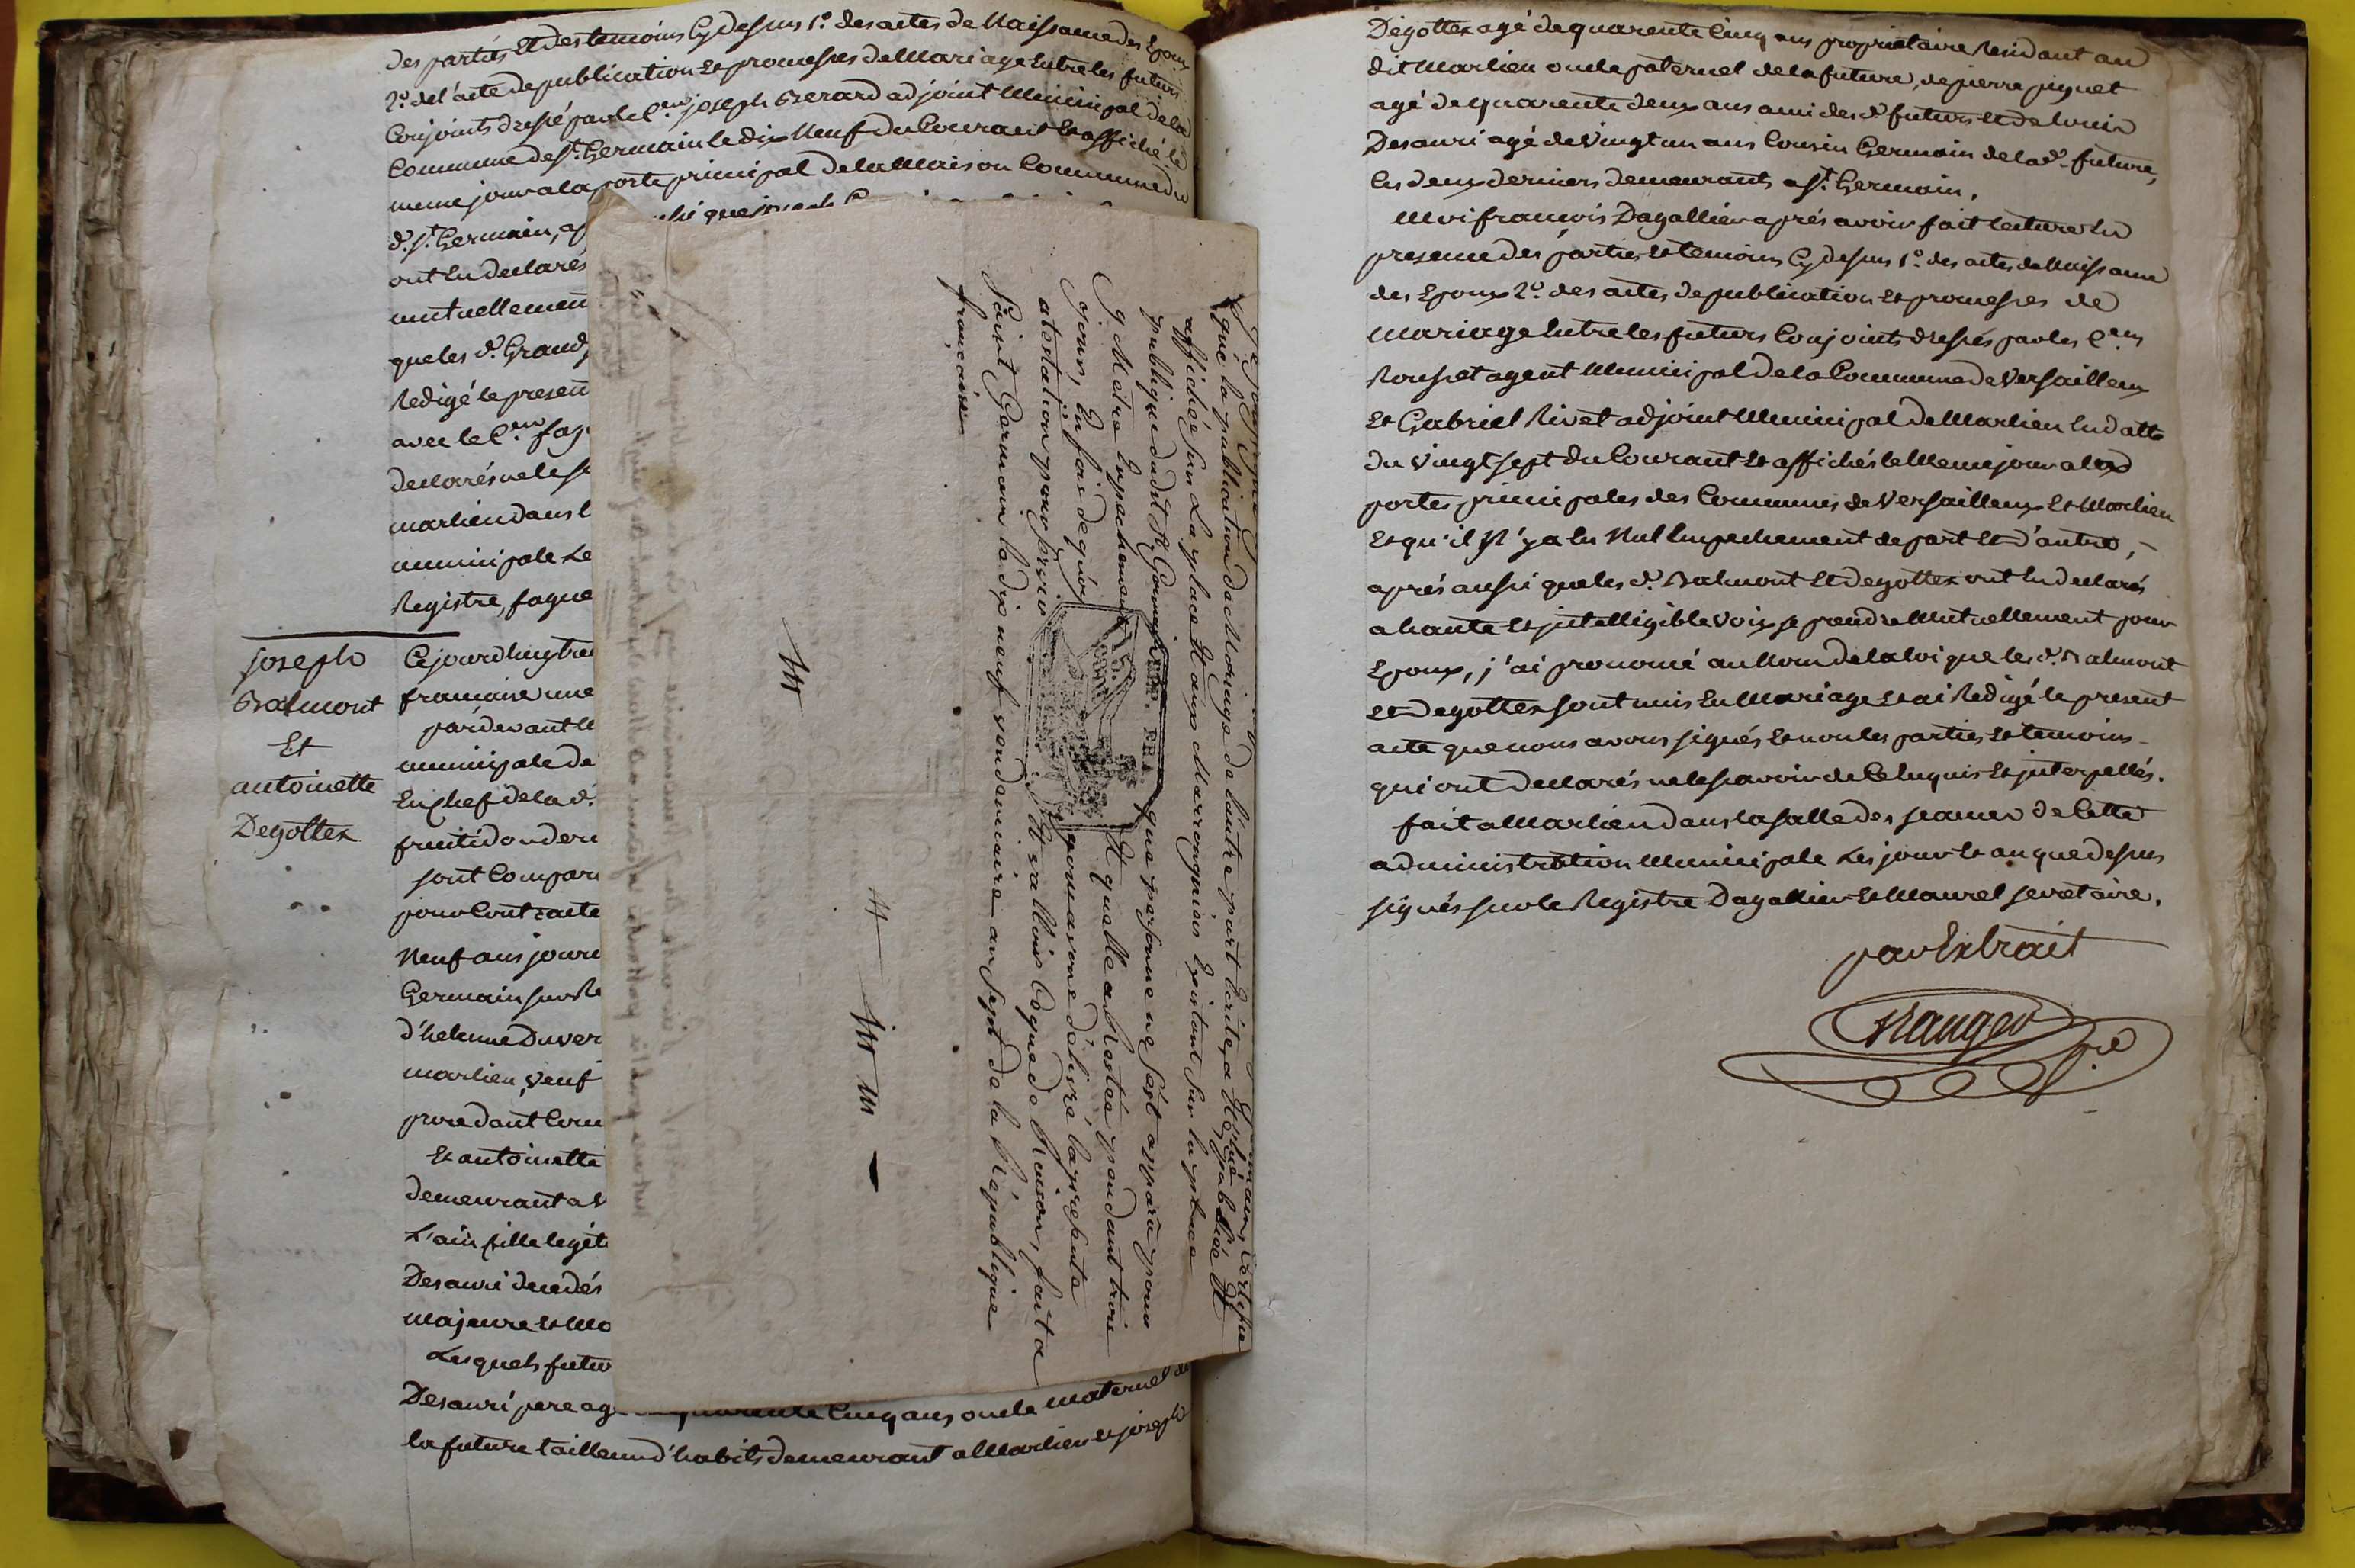 des parties Et des temoins Cy dessus 1.° des actes de Naissance des Epoux
2.° de l'acte de publication Et promesses de Mariage Entre les futurs
Conjoints dressé par le C.en joseph Berard adjoint Municipal de la
Commune de S.t Germain le dix Neuf du Courant Et affiché le
meme jour a la porte principal de la Maison Commune du
d. S.t Germain, ap
ont Eu declarés
mutuellemen
que les d. Grand
Redigé le presen
avec le C.en fag
declarés ne le s
marlieu dans l
municipale Le
Registre, fague
joseph
Balmont
Et
antoinette
Degottex
Cejourd'huy tre
francaise une
pardevant le
municipale de
En chef de la d.
sont Compar
pour Contracte
Neuf ans jour
Germain sur Re
d'helenne Duver
marlieu, veuf
procedant Com
Et antoinette
demeurant a V
L'ain fille legit
Desauri decedés
majeure Et Mo
Lesquels futur
Desauri pere ag quarente Cinq ans oncle maternel de
la future tailleur d'habits demeurant a Marlieu Et joseph
que la publication de Mariage de l'autre part Ecrite, a Eté publiée Et
affichée sur La place Et aux Marronguiers Existant sur la place
publique dudit St Germain que personne ne s'est apparu pour
y Metre Enpechement Et quelle a Restée pendant trois
jours, En foi de quoy nous avons délivré la présente
atestation pour servir Et valloir Ce que de Raison, fait a
Saint Germain le dix neuf vendemiaire an sept de la République
françaises
Degottex agé de quarente Cinq ans propriétaire Residant au
dit Marlieu oncle paternel de la future, de pierre piquet
agé de quarente deux ans ami des d. futurs Et de Louis
Desauri agé de Vingt un ans Cousin Germain de la d. future,
les deux derniers demeurants a S.t Germain.
Moi francois Dagallier aprés avoir fait lecture En
presence des parties Et temoins Cy dessus 1.° des actes de Naissance
des Epoux 2.° des actes de publication Et promesses de
Mariage Entre les futurs Conjoints dressés par les C.ens
Rousset agent Municipal de la Commune de Versailleux
Et Gabriel Rivet adjoint Municipal de Marlieu En datte
du Vingt sept du Courant Et affichés le Meme jour a la d
portes principales des Communes de Versailleux Et Marlieu
Et qu'il N'y a Eu Nul Empechement de part Et d'autre,
aprés aussi que les d. Balmont Et Degottex ont Eu declarés
a haute Et intelligible Voix se prendre Mutuellement pour
Epoux, j'ai prononcé au Nom de la loi que les d. Balmont
Et Degottex sont unis En Mariage Et ai Redigé le present
acte que nous avons signés Et non les parties Et temoins
qui ont declarés ne le scavoir de Ce Enquis Et interpellés.
fait a Marlieu dans la salle des seances de Cette
administration Municipale Les jour Et an que dessus
signés sur le Registre Dagallier Et Maurel secretaire.
par Extrait